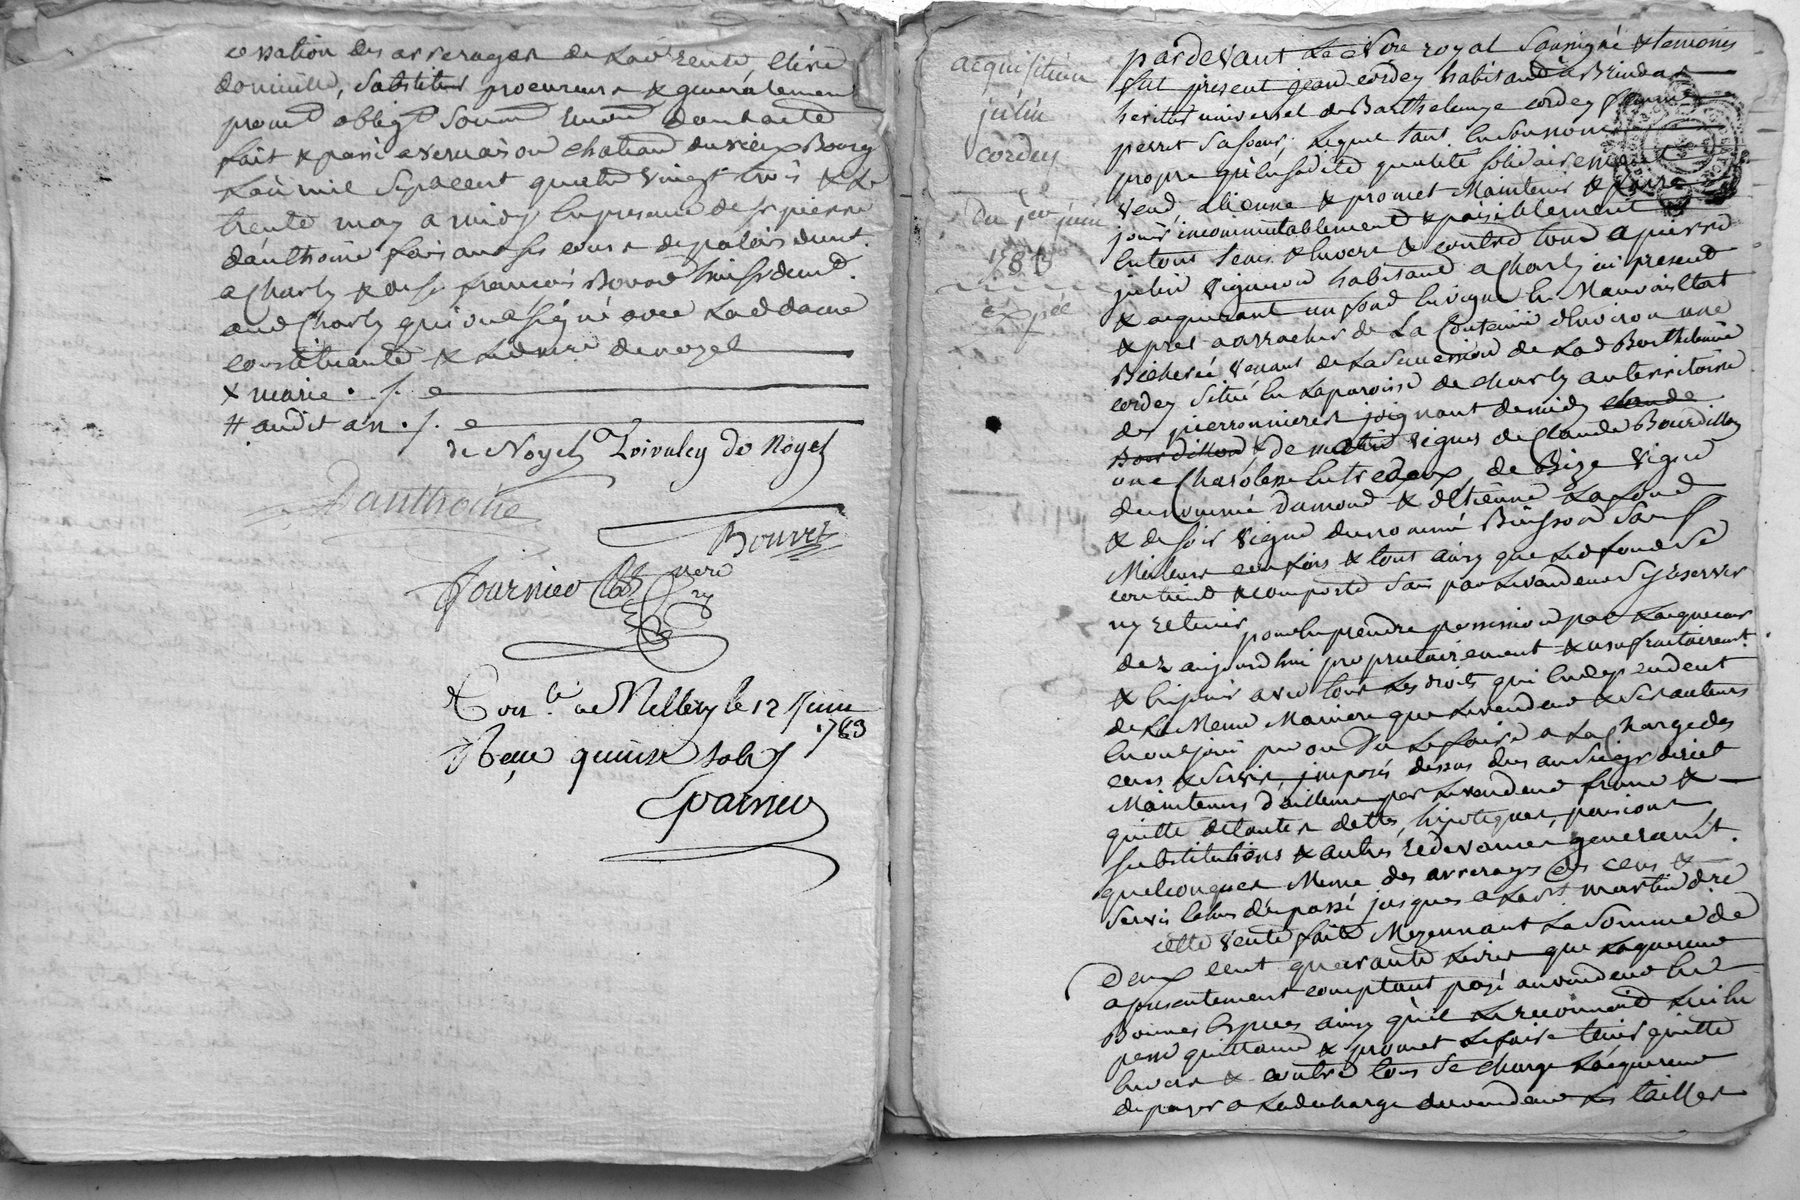 cessation des arrerages de lad rente, élire
domicille, substituer procureurs & generalement
promt obligt soumt renont dont acte
fait & passé a vernaison chateau du vieux Bourg
Laå mil sept cent quatre vingt trois & le
trente may a midy En presence de sr pierre
danthoine faisant ses cours de palais dmt.
a Charly & de sr francois Bouvet huissr dmt.
aud Charly qui ont signé avec lad dame
constituante & led mre denoyel
& marie ./. 
# audit an ./. 
de Noyel Trivuley De Noyel
Danthoine
Bouvet
Fournier
Con.lé a Millery le 12 juin
1783
Reçu quinze sols
Fournier
acquisition
julin
cordey
du 1er juin
1783
Expéé
pardevant Le Nore royal soussigné & temoins
fut present jean cordey habitant a Brindas
heritier universel de Barthelemye cordey femme
perret sa soeur, lequel tant En son nom
propre qu'En sadite qualité solidairement
vend alienne & promet Maintenir & faire
jouir incommutablement & paisiblement
En tout tems Envers & contre tous a pierre
julin vigneron habitant a Charly ici present
& acquerant un fond En vigne En Mauvais Etat
& prêt a arracher de La Contenue d'Environ une
Bicherée venant de La succession de Lad Barthelemie
cordey situé En La paroisse de Charly au territoire
des pierronnieres joignant de midy claude
Bourdillon, & de matin vignes de Claude Bourdillon
une Charriere Entre deux, de Bize vigne
du nommé dumond & d'Etienne Lafond
& de soir vigne du nommé Buisson sauf
Meilleurs confins & tout ainsy que Led fond se
contient & comporte sans par Le vendeur s'y reserver
ny retenir
pour En prendre possession par L'acquereur
dez aujourdhui proprietairement & usufruitairemt.
& En jouir avec tous Les droits qui En dependent
de La Meme Maniere que Le vendeur & ses auteurs
En ont joui pu ou Du Le faire a La Charge des
cens & servis imposés dessus dus au Seigr direct
Maintenus d'ailleurs par Le vendeur franc &
quitte de toutes dettes, hipoteques, pensions
substitutions & autres redevances generalt.
quelconques Meme des arrerages des cens &
servis Echus du passé jusques a La st martin dre
cette vente faite Moyennant La somme de
Deux cent quarante Livres que L'acquereur
a presentement comptant payé au vendeur En
Bonnes Especes ainsy qu'il Le reconnoit Lui En
passe quittance & promet Le faire tenir quitte
Envers & contre tous se charge L'acquereur
de payer a La decharge du vendeur Les tailles